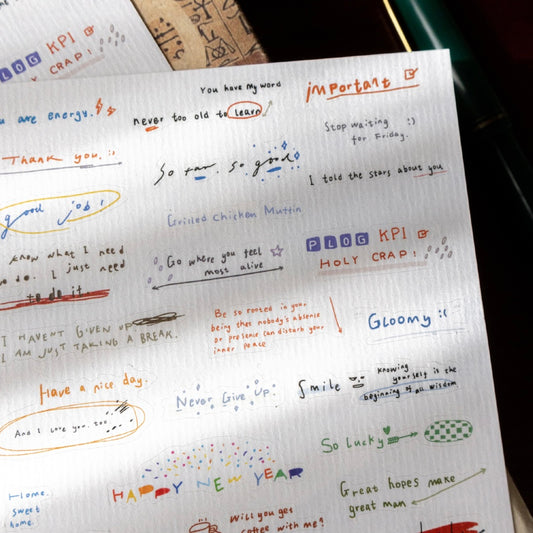 PLOG KPI
HOLY CRAP!
are energy.
You have my word
important
never too old to learn
Stop waiting :)
for Friday.
Thank you.
So far. so good
I told the stars about you
good job!
Grilled Chicken Muffin
PLOG KPI
HOLY CRAP!
know what I need
do. I just need
to do it
Go where you feel
most alive
I HAVENT GIVEN UP
I AM JUST TAKING A BREAK.
Be so rooted in your
being that nobody's absence
or presence can disturb your
inner peace
Gloomy :(
Have a nice day.
Never Give Up.
Smile
Knowing
yourself is the
beginning of all wisdom
And I love you too
So Lucky
HAPPY NEW YEAR
Home.
sweet
home.
Great hopes make
great man
Will you get
coffee with me?